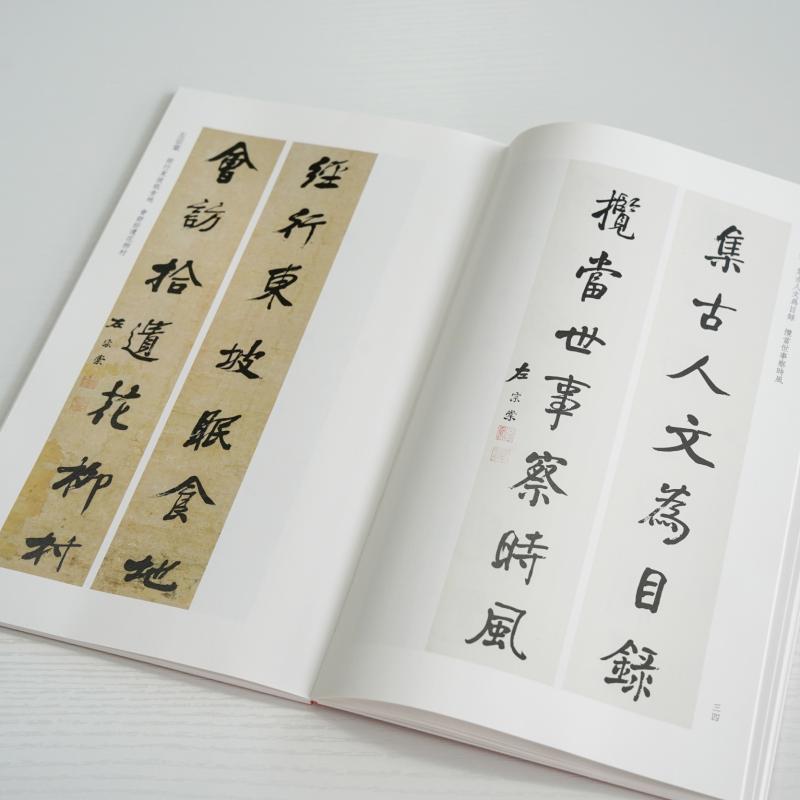 集古人文為目錄
攬當世事察時風
左宗棠
三四
經行東坡眠食地
會訪拾遺花柳村
左宗棠
左宗棠 經行東坡眠食地 會訪拾遺花柳村
集古人文為目錄 攬當世事察時風